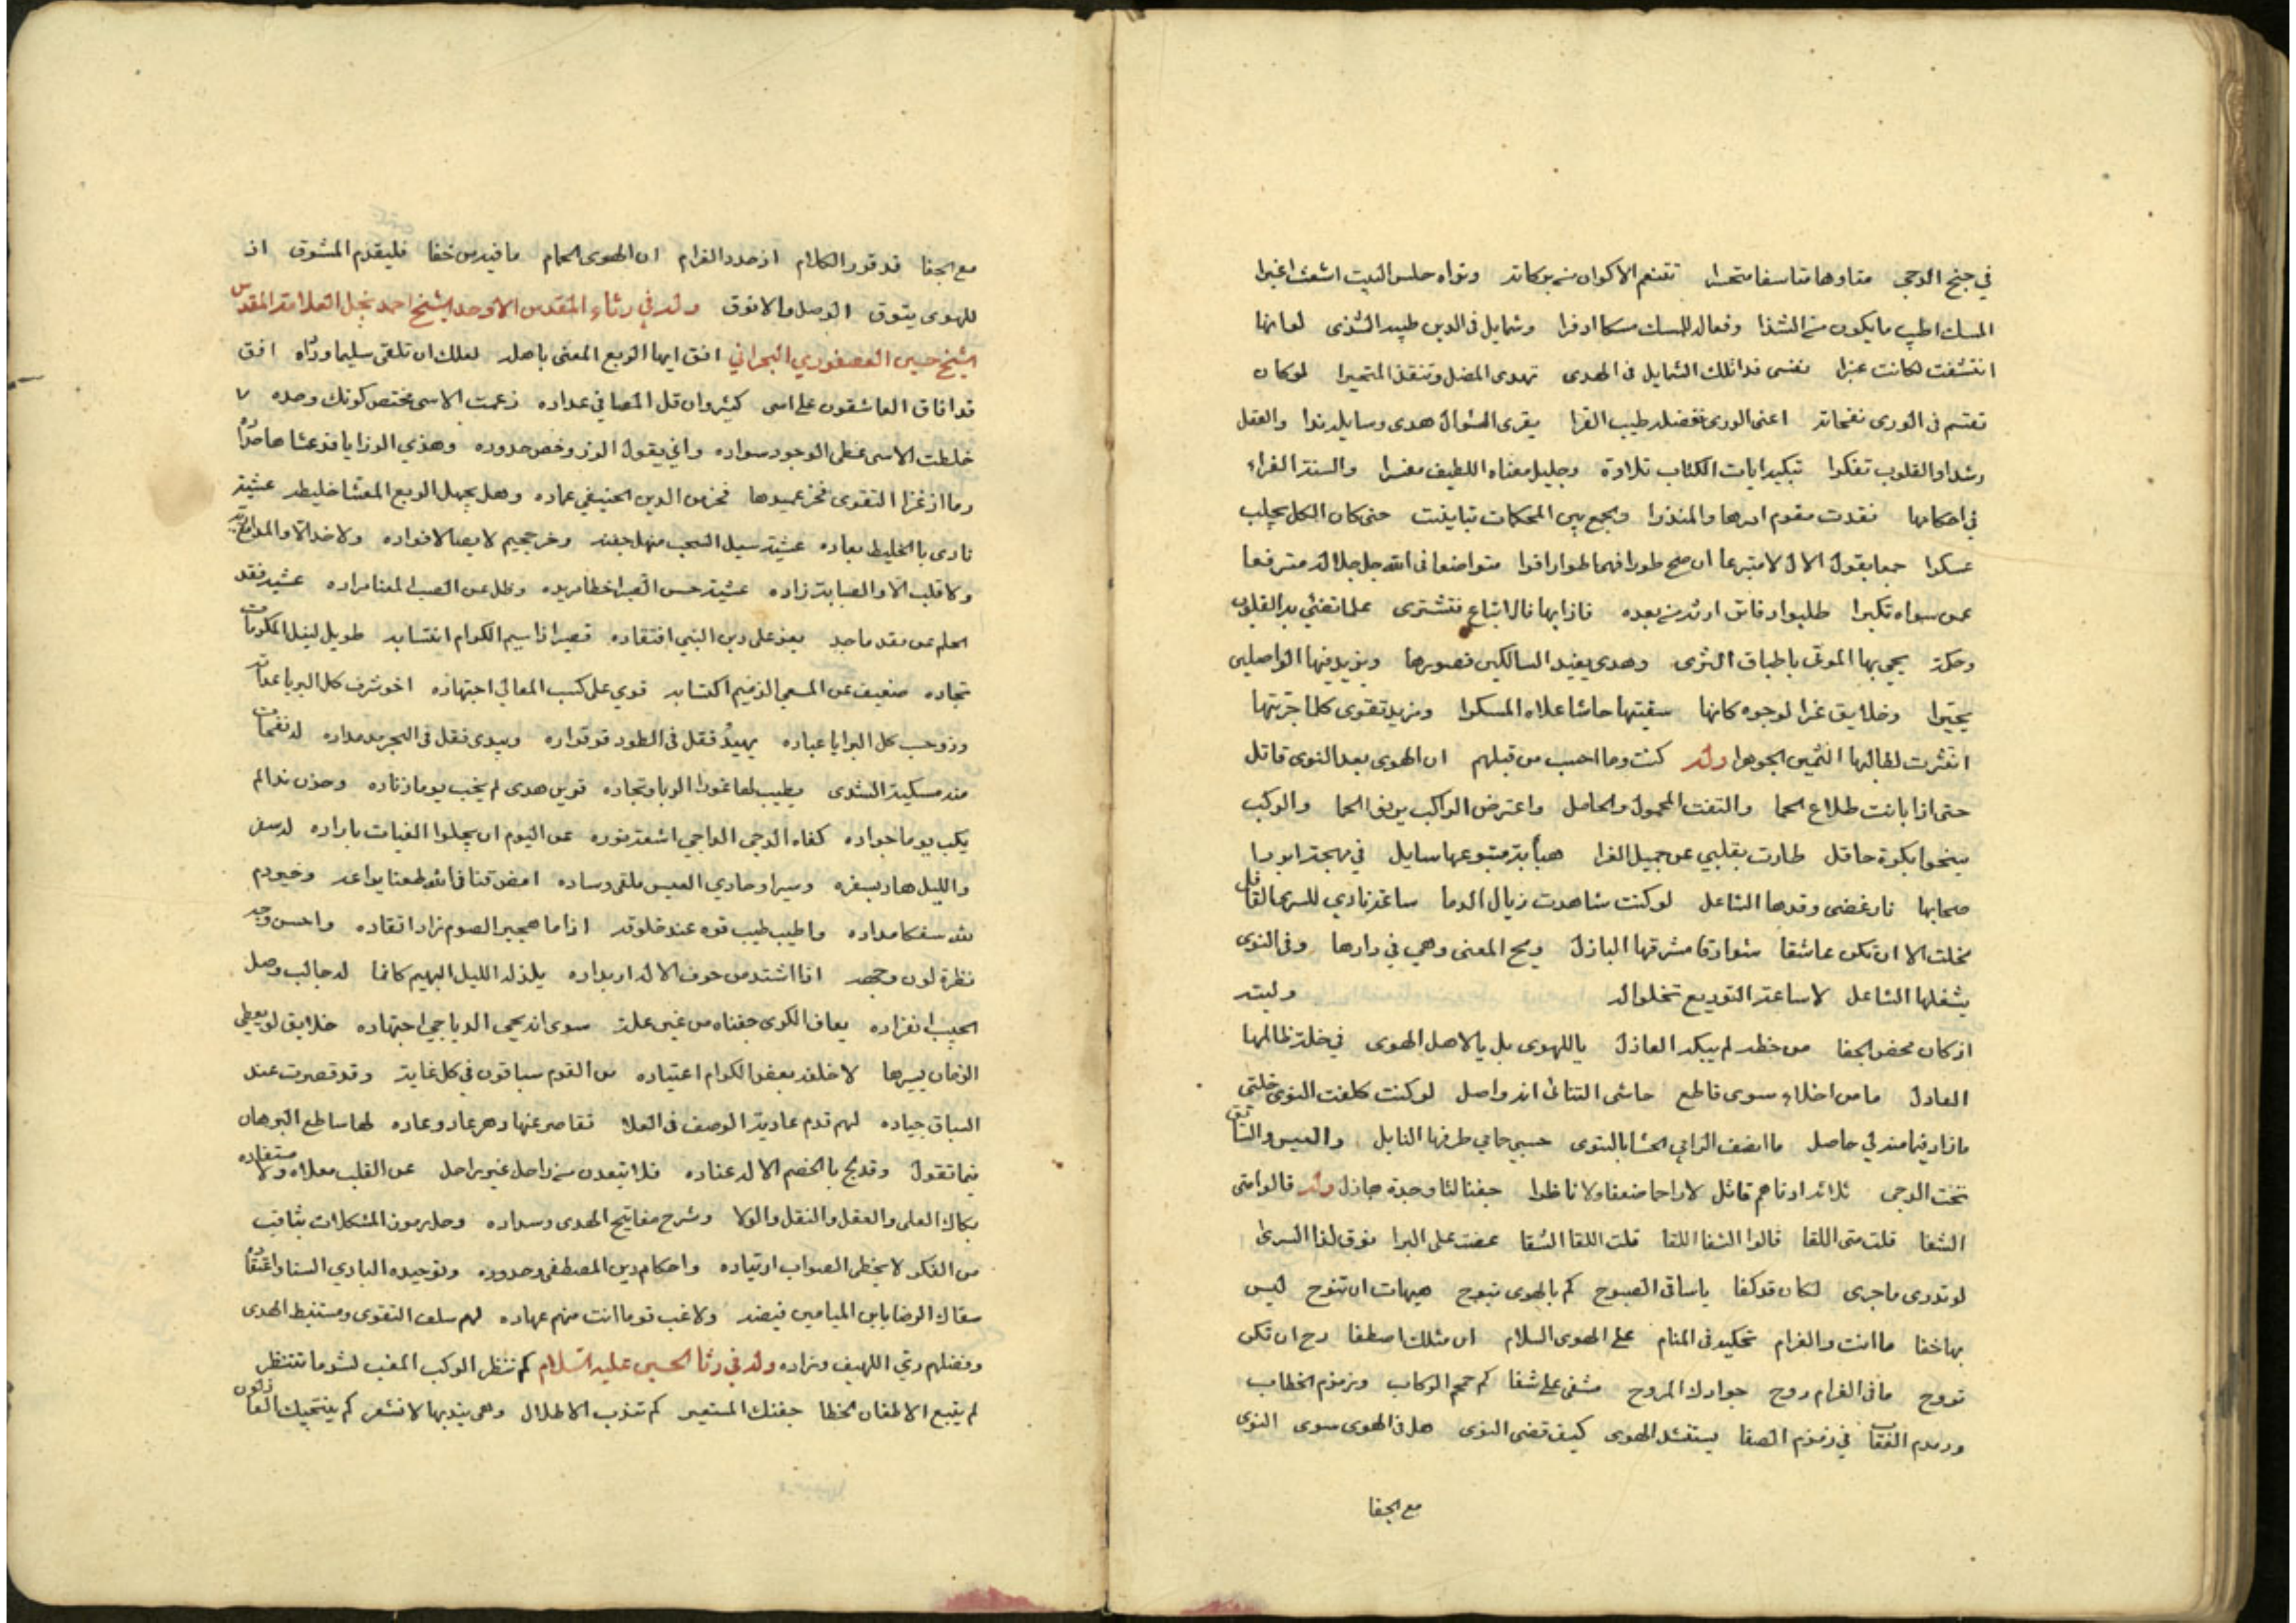 في جنح الدجى متاوها متاسفا متحسرا تقتعم الاكوان من بركاته وتراه حلس البيت اشعث اغبرا
المسك اطيب ما يكون من الشذا وفعاله للمسك مسكا اذفرا وشمايل في الدين طيبه الشذى لو انها
انتشقت لكانت عنبرا نفسي فدا تلك الشمايل في الهدى تهدى المضل وتنقذ المتحيرا لو كان
تقتسم في الورى نفحاته اغنى الورى بفضله طيب القرا يقرى السؤال هدى وسايله ندا والعقل
رشدا والقلوب تفكرا تبكيه ايات الكتاب تلاوة وجليل معناه اللطيف مفسرا والسنة الغراء
في احكامها فقدت مقوم امرها والمنذرا ويجمع بين المحكمات تباينت حتى كان الكل يجلب
عسكرا جمعا يقول الال لا متبرعا ان صح طورا فهما طوارا قرا متواضعا في الله جل جلاله مترفعا
عمن سواه تكبرا طلبوا دقائق ارثه من بعده فاذا بها قال اتباع فتشترى علما تضئ به القلوب
وحكمة يحيى بها الموتى باطباق الثرى وهدى يفيد السالكين قصورها ويزيد فيها الواصلين
تحيرا وخلايق غرا لوجوه كانها سقيتها حاشا علاه المسكرا ومزيد تقوى كلما جربتها
انتثرت لطالبها الثمين الجوهرا وله كنت وما احسب من قبلهم ان الهوى بعد النوى قاتل
حتى اذا بانت طلاع الحما والتفت المحمول والحامل واعترض الراكب يرنو الحما والركب
ينحوا بكرة حافل طارت بقلبي عن جميل العزا هبأبة متبوعها سايل في مهجة
صحابها نار غضى وقدها الشاعل لو كنت شاهدت زيال الدما ساعة نادي للسرى القافل
مخلت الا ان تكن عاشقا شوارقا مشرقها البازل ويح المعنى وهي في دارها وفي النوى
يشغلها الشاعل لا ساعة التوديع تخلوا له وليته
اذ كان محض الجفا من خطه لم يبكه العاذل يا للهوى بل يا لاهل الهوى في خلة ظالمها
العادل ما من اخلاء سوى قاطع حاشى التنائى انه واصل لو كنت كلفت النوى خلتي
ما زاد فيها منه لي حاصل ما انصف الرامي الحشا بالنوى حسبي حامي طرفها النابل والعيس والشائق
تحت الدجى ثلاثه ادناهم قاتل لا راحما ضعفا ولا ناظرا جفنا لنا وحدة هازل وله قالوا متى
الشفا قلت متى اللقا قالوا الشفا اللقا قلت اللقا الشقا عضت على البرا نوق لفا السرى
لو تدرى ما جرى لكان قد كفا يا ساقى الصبوح كم بالهوى تبوح هيهات ان تنوح ليس
بها خفا ما انت والغرام تحكيه في المنام على الهوى السلام ان مثلك اصطفا دح ان تكن
تروح ما في الغرام روح جوادك المروح مشفى على شفا كم حجم الركاب وزمزم الخطاب
ودمدم العقاب في زمزم الصفا يستنشد الهوى كيف قضى النوى هل في الهوى سوى النوى
مع الجفا
مع الجفا قد قرر الكلام اذ حدد الغرام ان الهوى الحمام ما فيه من خفا فليقدم المشوق اذ
للهوى يتوق الوصل والا فوق وله في رثاء المقدس الاوحد الشيخ احمد نجل العلامة المقدس
الشيخ حسين العصفوري البحراني افق ايها الربع المعنى باهله لعلك ان تلقى سليما وداه افق
قد افاق العاشقون على اسى كثير وان قل المصافي عداده زعمت الاسى مختص كونك وحده
خلطت الاسى غطى الوجود سواده واني يقول الرزء خص حدوده وهذي الرزايا قد عشاها حداده
وما از غزا التقوى فخز عميدها فخر من الدين الحنيفي عماده وهل يجهل الربع المعشا خليطه عشية
نادى بالخليط بعاده عشية سيل السحب منهل جفنه وخر جحيم لا يصالا فواده ولا خد الا والمدامع
ولا قلب الا والصبابة زاده عشية حسن الصبر اخطا مريده وظل عن الصب المعنا مراده عشية فقد
الحلم عن فقد ماجد يعز على دين النبي افتقاده قصير اذا سيم الكرام انتسابه طويل لنيل المكرمات
نجاده ضعيف عن المسعى الذميم اكتسابه قوي على كسب المعالي اجتهاده اخو شرف كل البرايا عداته
وذو حسب كل البرايا عباده يهيئ فقل في الطود قر قراره ويبدى فقل في البحر مد مداده له نفحات
منه مسكية الشذى يطيب لها غور الربا ونجاده قرين هدى لم يخب يوما زناده وحزن ندا لم
يكب يوما جواده كفاه الدجى الداجي اشعة نوره عن اليوم ان يجلوا الغيات باراده له سفر
والليل هاد بسفره وسيرا وحادي العيس ملقى وساده امض قنا في الله طعنا يواعد وخيردم
لله سفكا مداده واطيب طيب قوه عند خلوقه اذا ما هجير الصوم زاد اتقاده واحسن وجه
نظرة لون وجهه اذا اشتد من خوف الاله اربداده يلذ له الليل البهيم كانما له جالب وصل
الحبيب انفراده يعاف الكرى جفناه من غير علة سوى انه يحيى الدياجي اجتهاده خلايق لو يعطى
الزمان يسيرها لا خلف بعض الكرام اعتياده من القوم سباقون في كل غاية وقد قصرت عند
السباق جياده لهم قدم عادية الوصف في العلا تقاصر عنها دهر عاد وعاده لها ساطع البرهان
فيما تقول وقد لج بالخصم الالد عناده فلا تبعدن من راحل غير راحل عن القلب معلاه ولا مستفاده
بكاك العلى والعقل والنقل والولا وشرح مفاتيح الهدى وسداده وحل رموز المشكلات بثاقب
من الفكر لا يخطى الصواب ارتياده واحكام دين المصطفى وحدوده وتوحيده البادي السنا واعتقاده
سقاك الرضا يابن الميامين فيضه ولا غب قوما انت منهم عهاده لهم سلف التقوى ومستنبط الهدى
وفضلهم ري اللهيف وزاده وله في رثا الحسين عليه السلام كم تنظر الركب المغب لشوما تنتظر
لم يتبع الاظعان الخطا جفنك المستعبر كم تندب الاطلال وهي يندبها لا تشعر كم ينتحيك العاذلون